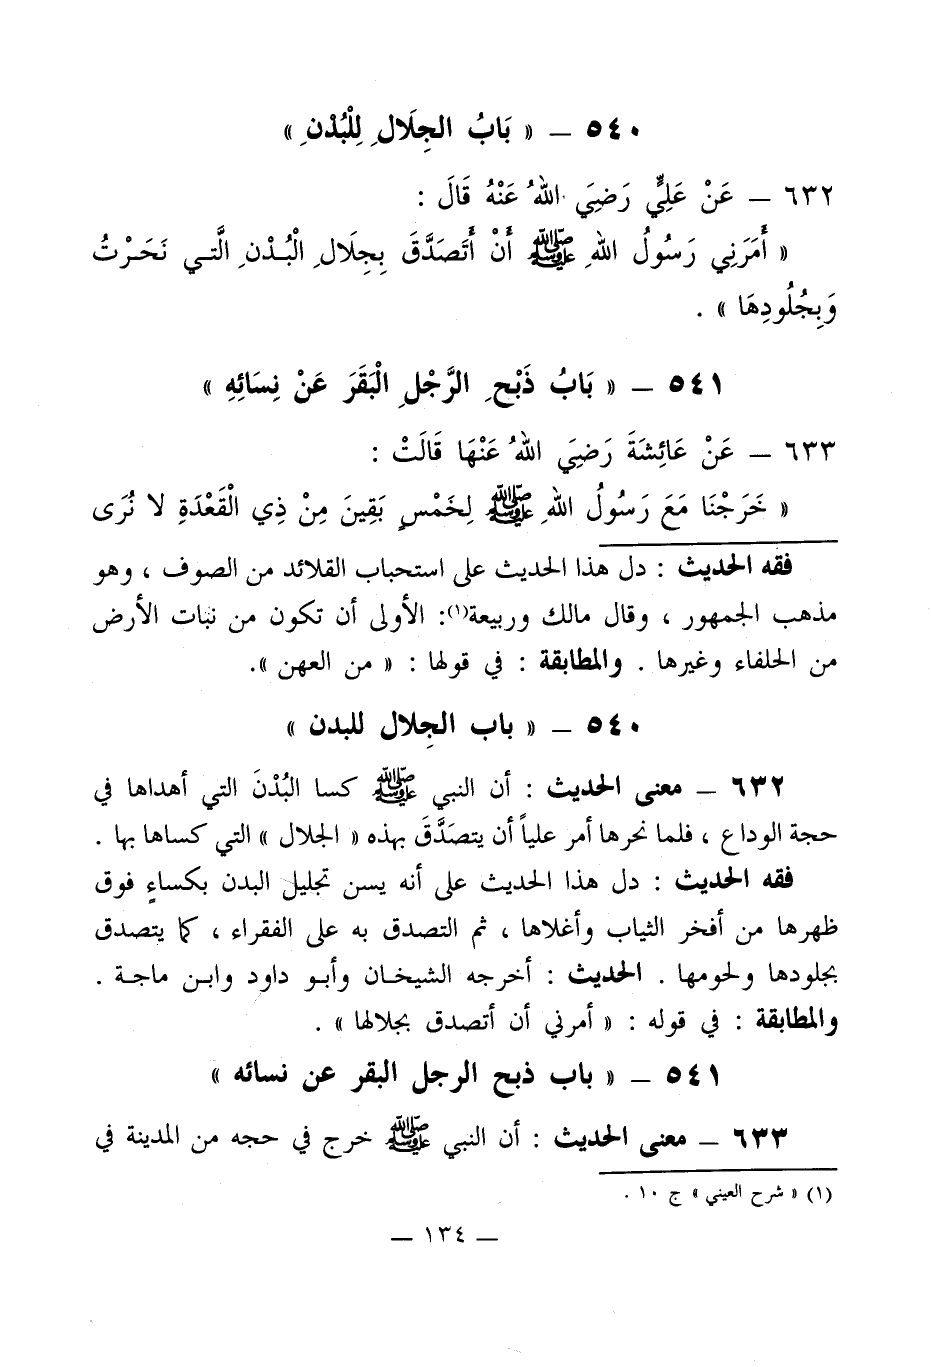 ٥٤٠ – « بَابُ الجِلَالِ لِلْبُدْنِ »
٦٣٢ – عَنْ عَلِيٍّ رَضِيَ اللهُ عَنْهُ قَالَ :
« أَمَرَنِي رَسُولُ اللهِ ﷺ أَنْ أَتَصَدَّقَ بِجِلَالِ الْبُدْنِ الَّتِي نَحَرْتُ
وَبِجُلُودِهَا » .
٥٤١ – « بَابُ ذَبْحِ الرَّجُلِ الْبَقَرَ عَنْ نِسَائِهِ »
٦٣٣ – عَنْ عَائِشَةَ رَضِيَ اللهُ عَنْهَا قَالَتْ :
« خَرَجْنَا مَعَ رَسُولُ اللهِ ﷺ لِخَمْسٍ بَقِينَ مِنْ ذِي الْقَعْدَةِ لا نُرَى
فقه الحديث : دل هذا الحديث على استحباب القلائد من الصوف ، وهو
مذهب الجمهور ، وقال مالك وربيعة(١): الأولى أن تكون من نبات الأرض
من الحلفاء وغيرها . والمطابقة : في قولها : « من العهن ».
٥٤٠ – « باب الجِلال للبدن »
٦٣٢ – معنى الحديث : أن النبي ﷺ كسا البُدْنَ التي أهداها في
حجة الوداع ، فلما نحرها أمر علياً أن يتصَدَّقَ بهذه « الجلال » التي كساها بها .
فقه الحديث : دل هذا الحديث على أنه يسن تجليل البدن بكساءٍ فوق
ظهرها من أفخر الثياب وأغلاها ، ثم التصدق به على الفقراء ، كما يتصدق
بجلودها ولحومها . الحديث : أخرجه الشيخان وأبو داود وابن ماجة .
والمطابقة : في قوله : « أمرني أن أتصدق بجلالها » .
٥٤١ – « باب ذبح الرجل البقر عن نسائه »
٦٣٣ – معنى الحديث : أن النبي ﷺ خرج في حجه من المدينة في
(١) « شرح العيني » ج ١٠ .
– ١٣٤ –